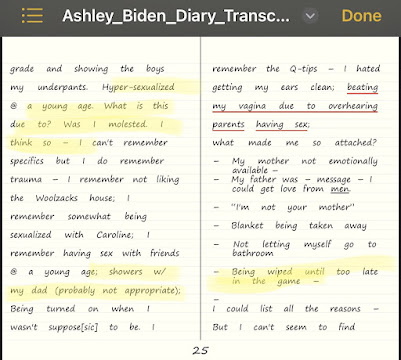 Ashley_Biden_Diary_Transc...
Done
grade and showing the boys
my underpants. Hyper-sexualized
@ a young age. What is this
due to? Was I molested. I
think so – I can't remember
specifics but I do remember
trauma – I remember not liking
the Woolzacks house; I
remember somewhat being
sexualized with Caroline; I
remember having sex with friends
@ a young age; showers w/
my dad (probably not appropriate);
Being turned on when I
wasn't suppose[sic] to be. I
remember the Q-tips – I hated
getting my ears clean; beating
my vagina due to overhearing
parents having sex;
what made me so attached?
– My mother not emotionally
available –
– My father was – message – I
could get love from men.
– "I'm not your mother"
– Blanket being taken away
– Not letting myself go to
bathroom
– Being wiped until too late
in the game –
–
I could list all the reasons –
But I can't seem to find
25